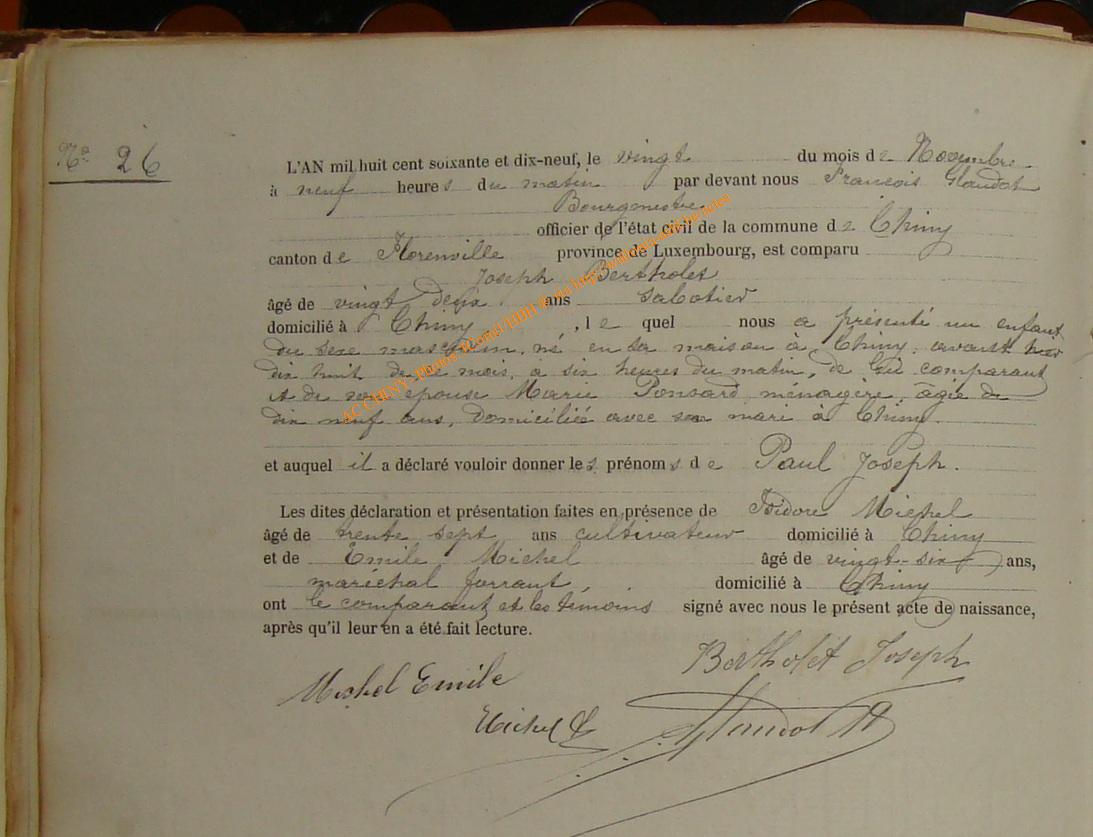 N° 26
L'AN mil huit cent soixante et dix-neuf, le vingt du mois de Novembre
à neuf heures du matin par devant nous François Glaudot
Bourgmestre
officier de l'état civil de la commune de Chiny
canton de Florenville province de Luxembourg, est comparu
Joseph Bertholet
âgé de vingt deux ans sabotier
domicilié à Chiny, le quel nous a présenté un enfant
du sexe masculin, né en sa maison à Chiny, avant hier
dix huit de ce mois, à six heures du matin, de lui comparant
et de son épouse Marie Ponsard, ménagère, âgée de
dix neuf ans, domiciliée avec son mari à Chiny.
et auquel il a déclaré vouloir donner les prénoms de Paul Joseph.
Les dites déclaration et présentation faites en présence de Isidore Michel
âgé de trente sept ans cultivateur domicilié à Chiny
et de Emile Michel âgé de vingt-six ans,
maréchal ferrant, domicilié à Chiny
ont le comparant et les témoins signé avec nous le présent acte de naissance,
après qu'il leur en a été fait lecture.
Bertholet Joseph
Michel Emile
Michel
Glaudot
AC CHINY - Photos